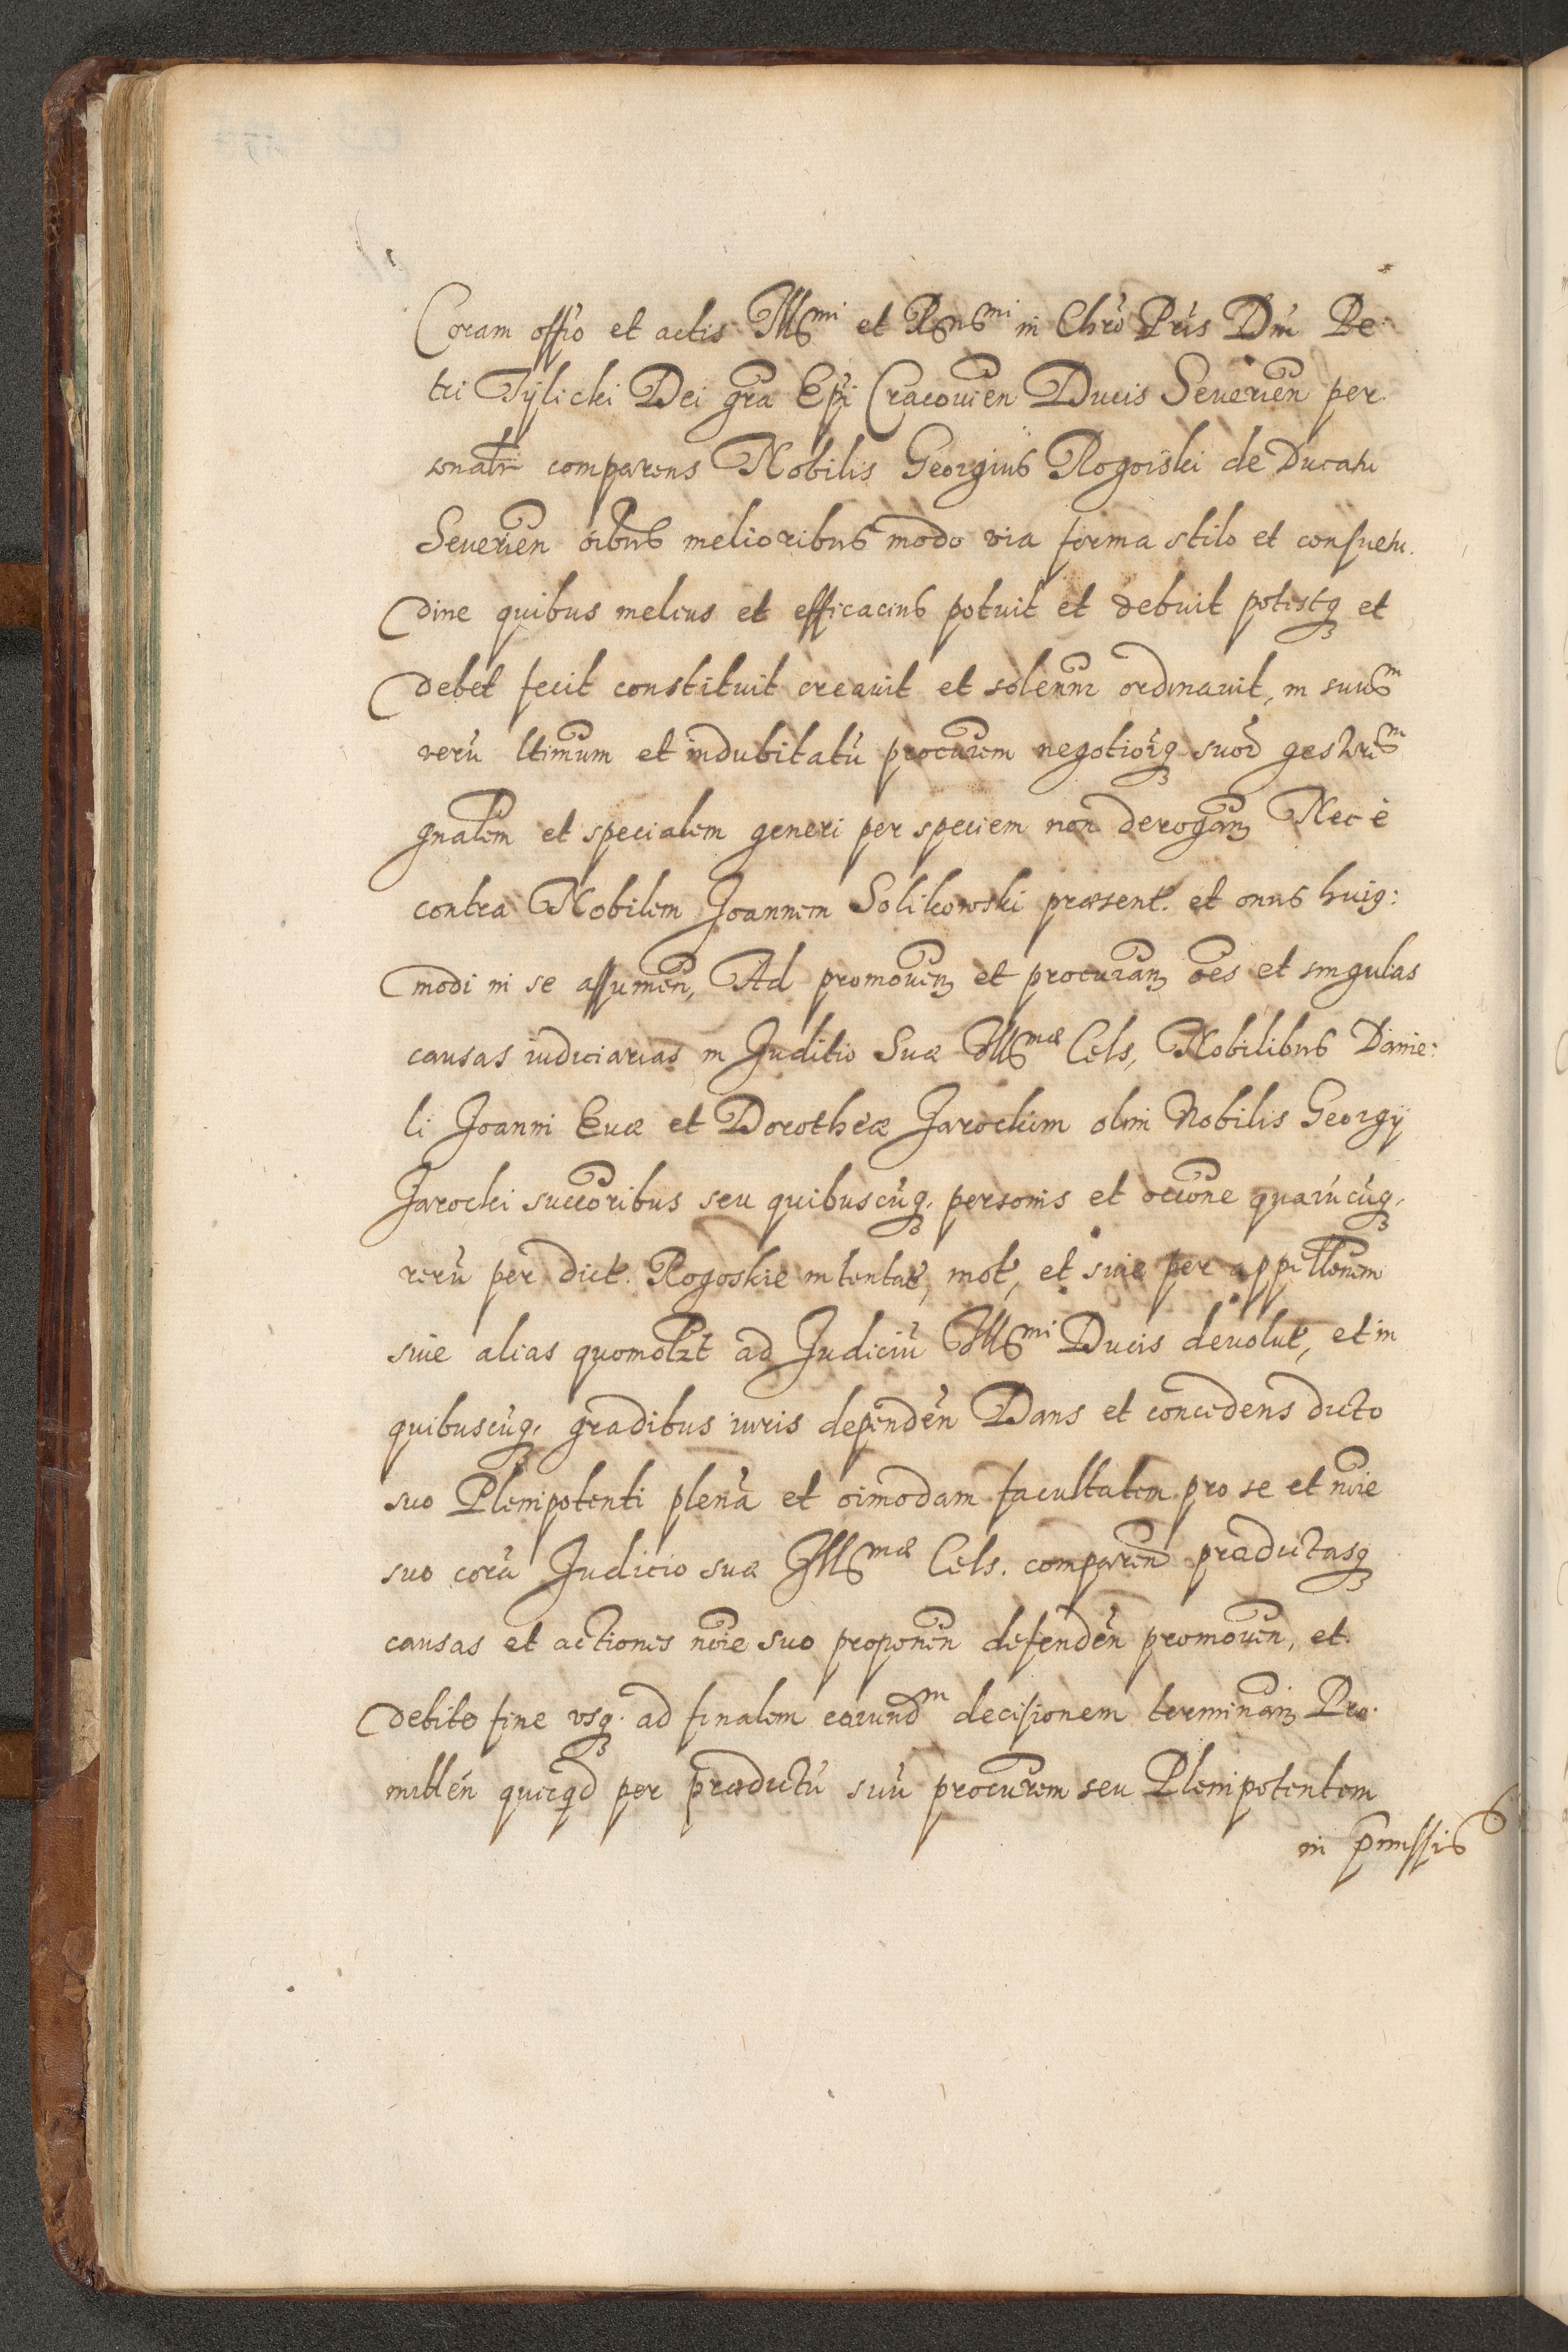 Coram offio et actis Illmi et Rndmi in Chrō Pris Dni Pe
tri Tylicki Dei grā Epi Cracouien Ducis Seuerien per
sonalr comparens Nobilis Georgius Rogoiski de Ducatu
Seuerien oibus melioribus modo via forma stilo et consuetu
dine quibus melius et efficacius potuit et debuit potestq et
debet fecit constituit creauit et solenr ordinauit, in suum
verū ltimum et indubitatū procurem negotiorq suor gestorem
gnalem et specialem generi per speciem non derogan Nec è
contra Nobilem Joannem Solikowski præsent. et onus huiq:
modi in se assumen, Ad promouen et procuran oēs et singulas
causas iudiciarias in Juditio Suæ Illmæ Cels, Nobilibus Danie:
li Joanni Euæ et Dorotheæ Jarockim olim Nobilis Georgij
Jarocki succoribus seu quibuscūq, personis et occōne quarūcūq,
rerū per dict. Rogoskie intentat, mot, et siue per appellonem
siue alias quomolzt ad Judiciū Illmi Ducis deuolut, et in
quibuscūq, gradibus iuris dependēn Dans et concedens dicto
suo Plenipotenti plenā et oimodam facultatem pro se et noie
suo corā Judicio suæ Illmæ Cels. comparen prædictasq
causas et actiones noie suo proponen defendēn promouen, et
debito fine vsq. ad finalem earundm decisionem terminan Pro
mitten quicqd per prædictū suū procurem seu Plenipotentem
in pmissis